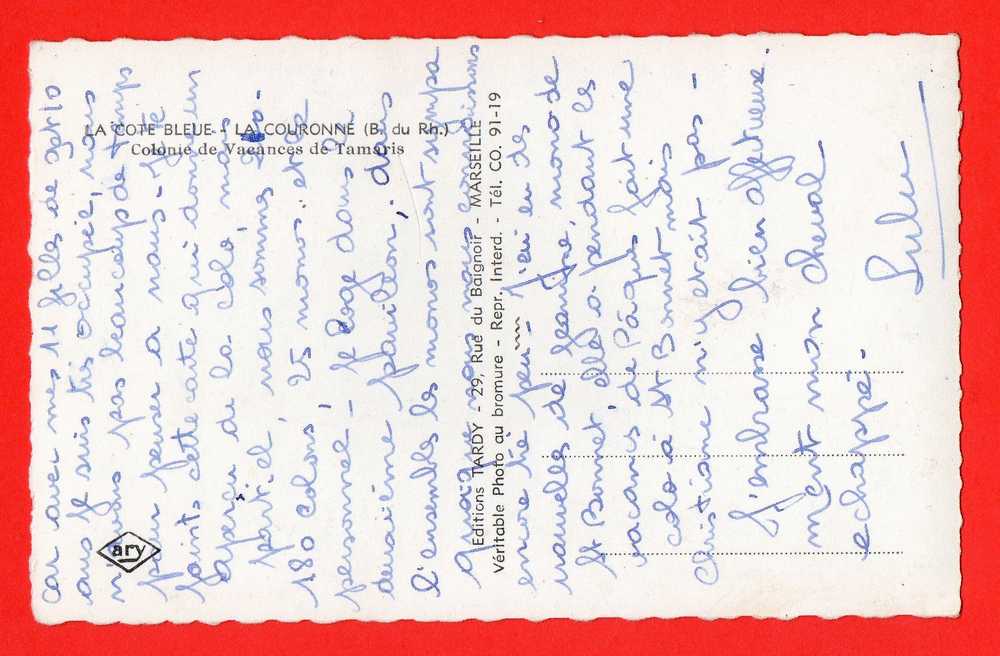 LA COTE BLEUE - LA COURONNE (B. du Rh.)
Colonie de Vacances de Tamaris
ary
Editions TARDY - 29, Rue du Baignoir - MARSEILLE
Véritable Photo au bromure - Repr. Interd. - Tél. CO. 91-19
car avec mes 11 filles de 9 à 10
ans je suis très occupée, nous
n'avons pas beaucoup de temps
pour penser à nous - Je
joints cette carte qui donne un
aperçu de la colo, mais
partiel, nous sommes
180 colons, 25 monos et le
personnel - Je loge dans le
deuxième pavillon, dans
l'ensemble les monos sont sympa
quoique nous nous connaissions
encore très peu - J'ai eu des
nouvelles de mono de
St Bonnet, elle a pendant les
vacances de Pâques fait une
colo à St Bonnet mais
Christiane n'y était pas -
Je t'embrasse bien affectueuse.
ment mon cheval
echappé.
Lulu